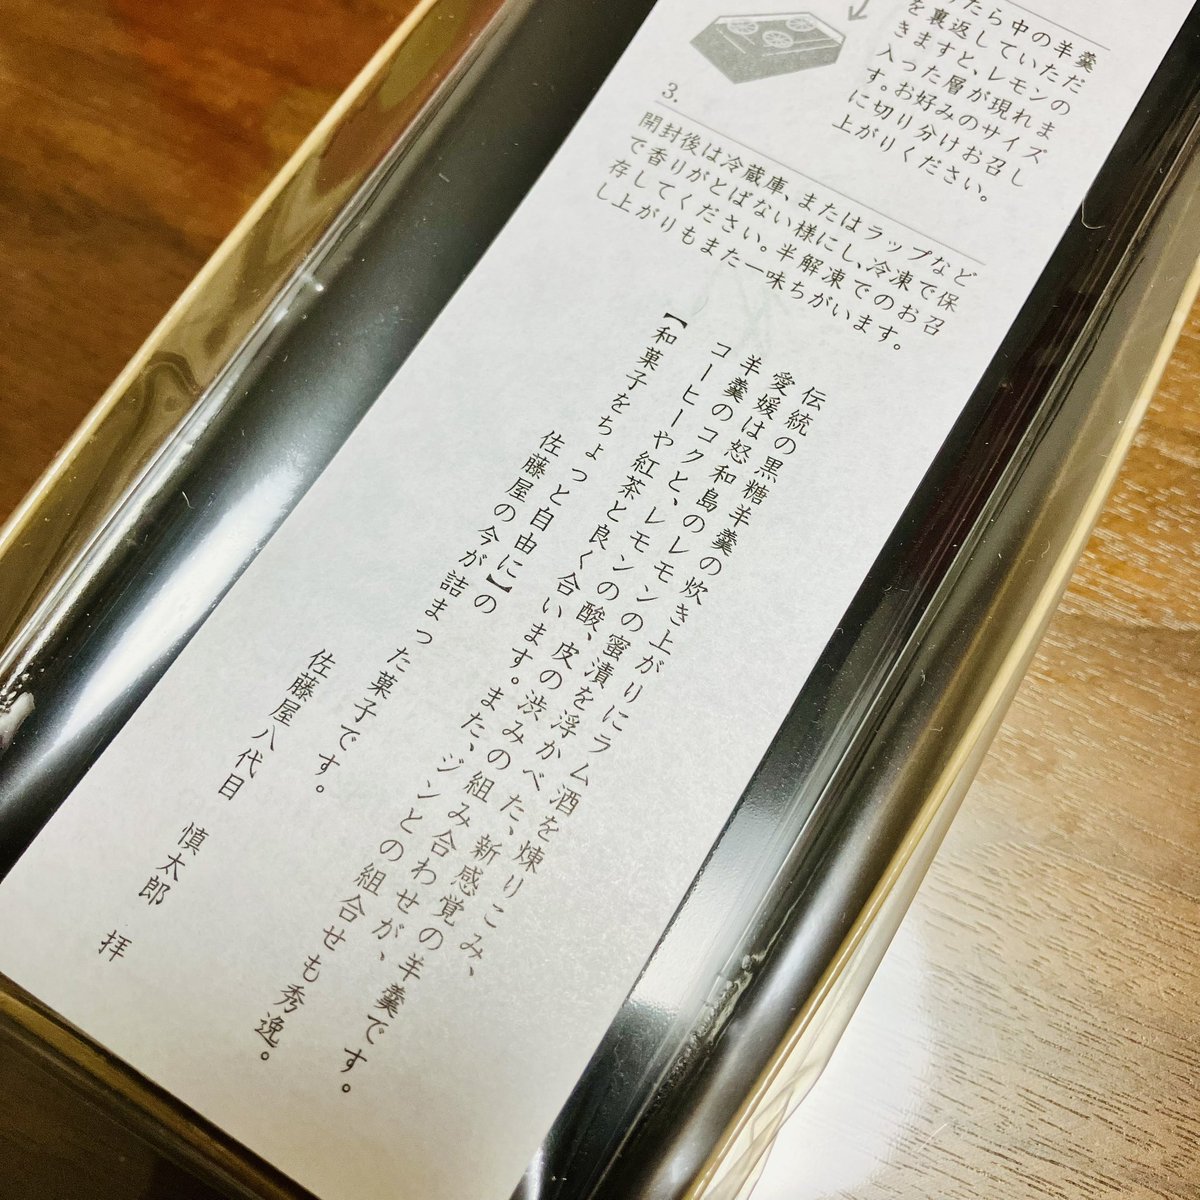 たら中の羊羹
を裏返していただ
きますと、レモンの
入った層が現れま
す。お好みのサイズ
に切り分けお召し
上がりください。
3.
開封後は冷蔵庫、またはラップなど
で香りがとばない様にし、冷凍で保
存してください。半解凍でのお召
し上がりもまた一味ちがいます。
伝統の黒糖羊羹の炊き上がりにラム酒を煉りこみ、
愛媛は怒和島のレモンの蜜漬を浮かべた、新感覚の羊羹です。
羊羹のコクと、レモンの酸、皮の渋みの組み合わせが、
コーヒーや紅茶と良く合います。また、ジンとの組合せも秀逸。
【和菓子をちょっと自由に】の
佐藤屋の今が詰まった菓子です。
佐藤屋八代目 慎太郎 拝